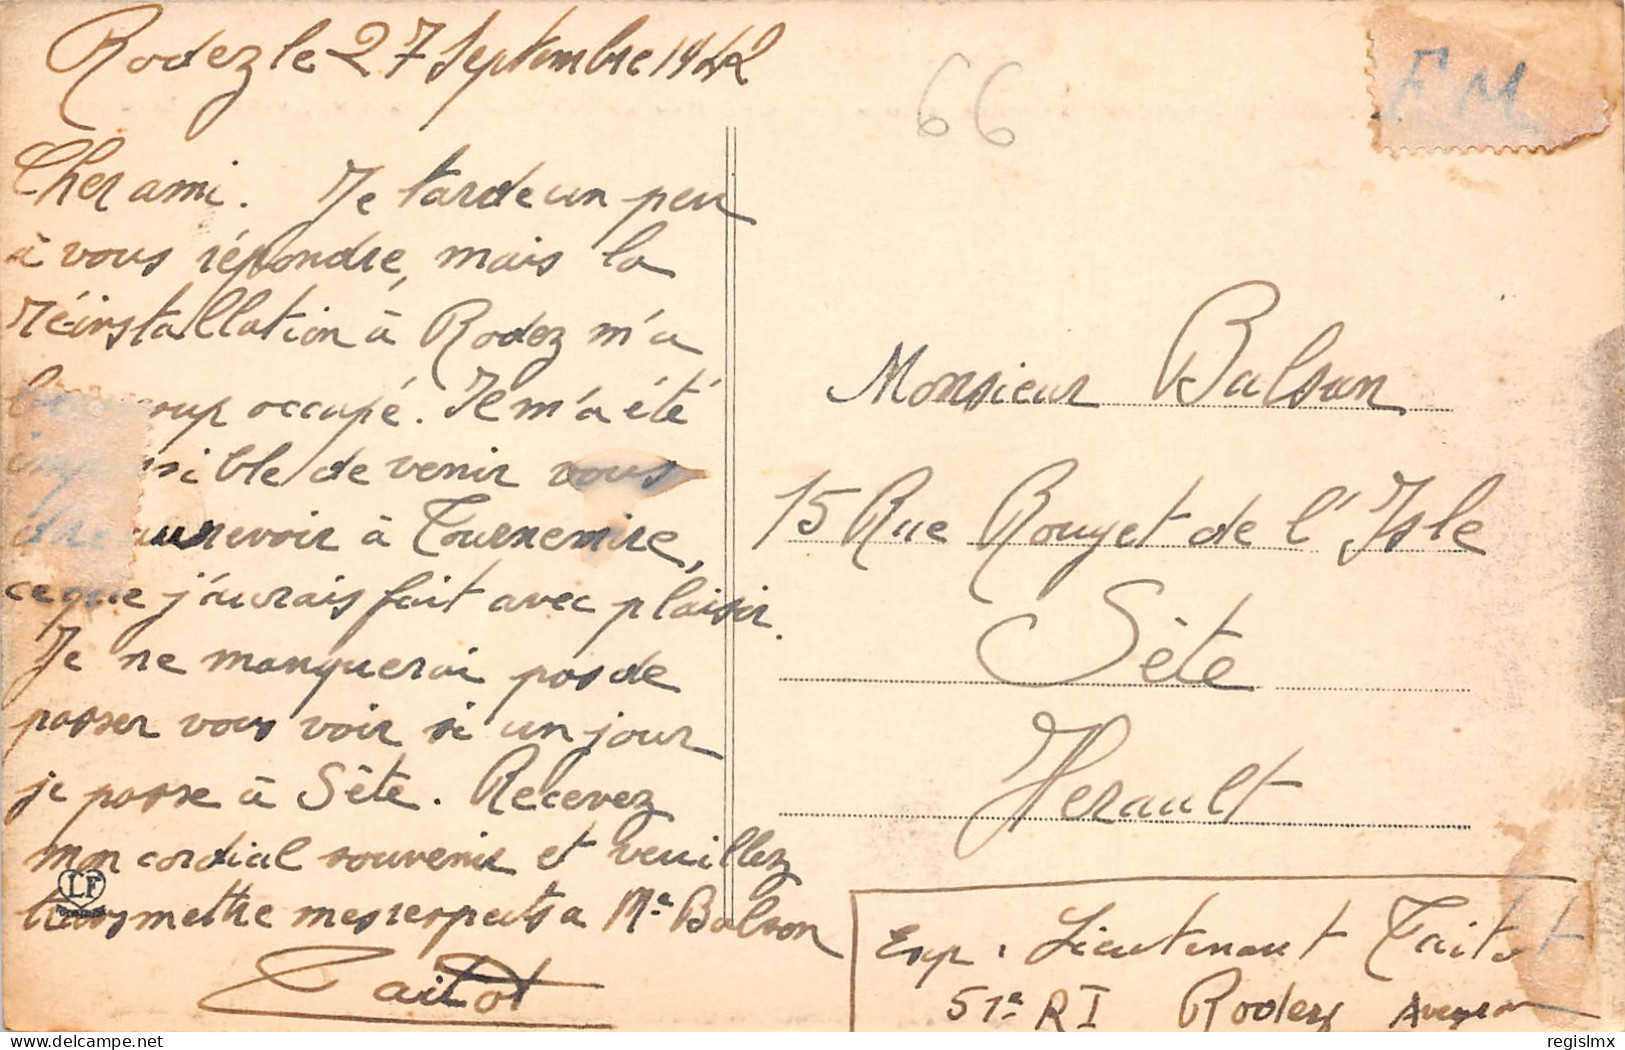 Rodez le 27 Septembre 1942
66
F M
Cher ami. Je tarde un peu
à vous répondre, mais la
réinstallation à Rodez m'a
beaucoup occupé. Il m'a été
impossible de venir vous
dire au revoir à Tournemire,
ce que j'aurais fait avec plaisir.
Je ne manquerai pas de
passer vous voir si un jour
je passe à Sète. Recevez
mon cordial souvenir et veuillez
transmettre mes respects a Me Balsan
Taitot
LF
Monsieur Balsan
15 Rue Rouget de l'Isle
Sète
Herault
Exp: Lieutenant Taitot
51e RI Rodez Aveyron
regislmx